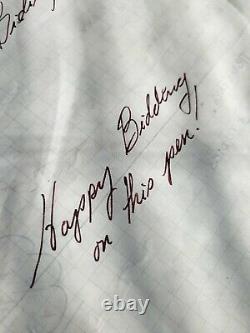 Happy Bidding
on this pen!